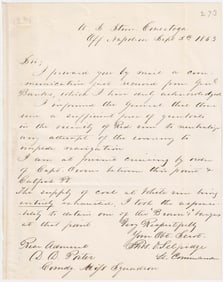 U. S. Str. Conestoga
Off Napoleon Sept 5th 1863
Sir;
I forward you by mail a com-
munication just received from Genl.
Banks, which I have duly acknowledged.
I informed the General that there
was a sufficient force of gunboats
in the vicinity of Red river to neutralize
any attempts of the enemy to
impede navigation
I am at present cruising by order
of Capt. between this point &
The supply of coal at White river being
entirely exhausted, I took the respon-
sibility to detain one of the barges
at this point
Very Respectfully
Your Obt. Servt.
Thos. O. Selfridge
Lt. Commander
Rear Admiral
D. D. Porter
Comdg Miss. Squadron